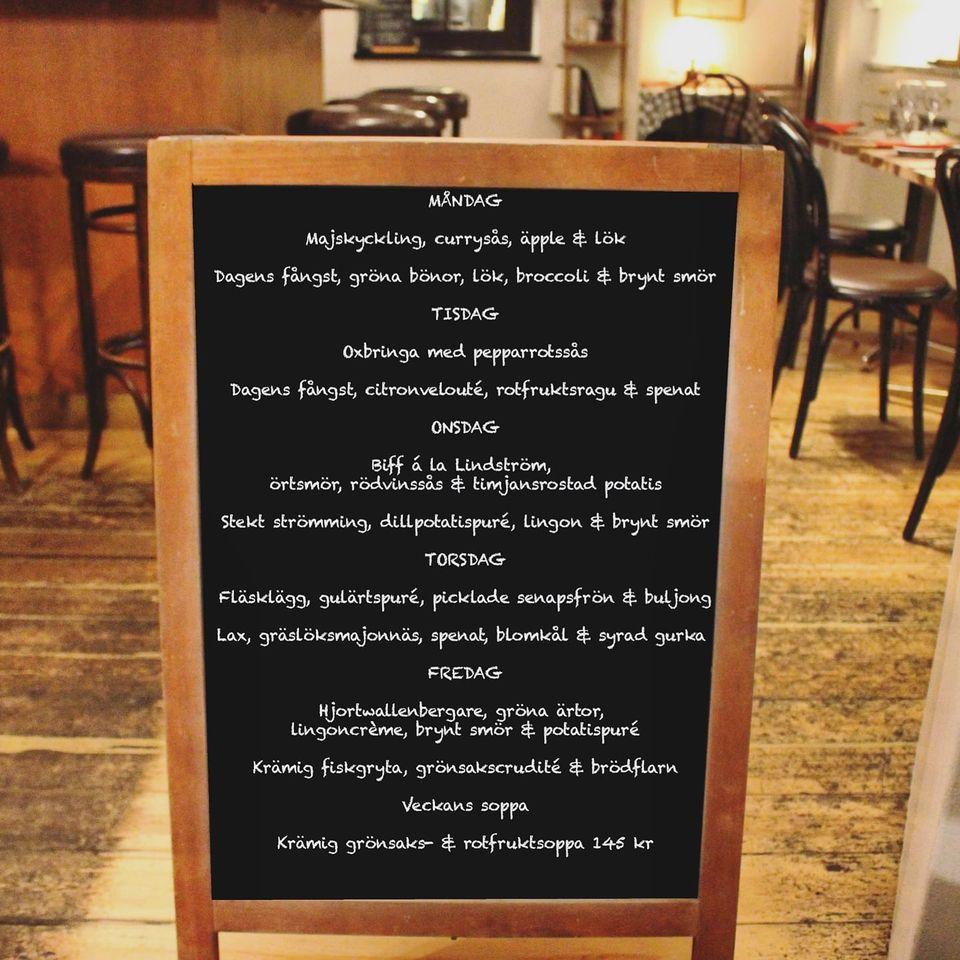 MÅNDAG
Majskyckling, currysås, äpple & lök
Dagens fångst, gröna bönor, lök, broccoli & brynt smör
TISDAG
Oxbringa med pepparrotssås
Dagens fångst, citronvelouté, rotfruktsragu & spenat
ONSDAG
Biff á la Lindström,
örtsmör, rödvinssås & timjansrostad potatis
Stekt strömming, dillpotatispuré, lingon & brynt smör
TORSDAG
Fläsklägg, gulärtspuré, picklade senapsfrön & buljong
Lax, gräslöksmajonnäs, spenat, blomkål & syrad gurka
FREDAG
Hjortwallenbergare, gröna ärtor,
lingoncrème, brynt smör & potatispuré
Krämig fiskgryta, grönsakscrudité & brödflarn
Veckans soppa
Krämig grönsaks- & rotfruktsoppa 145 kr